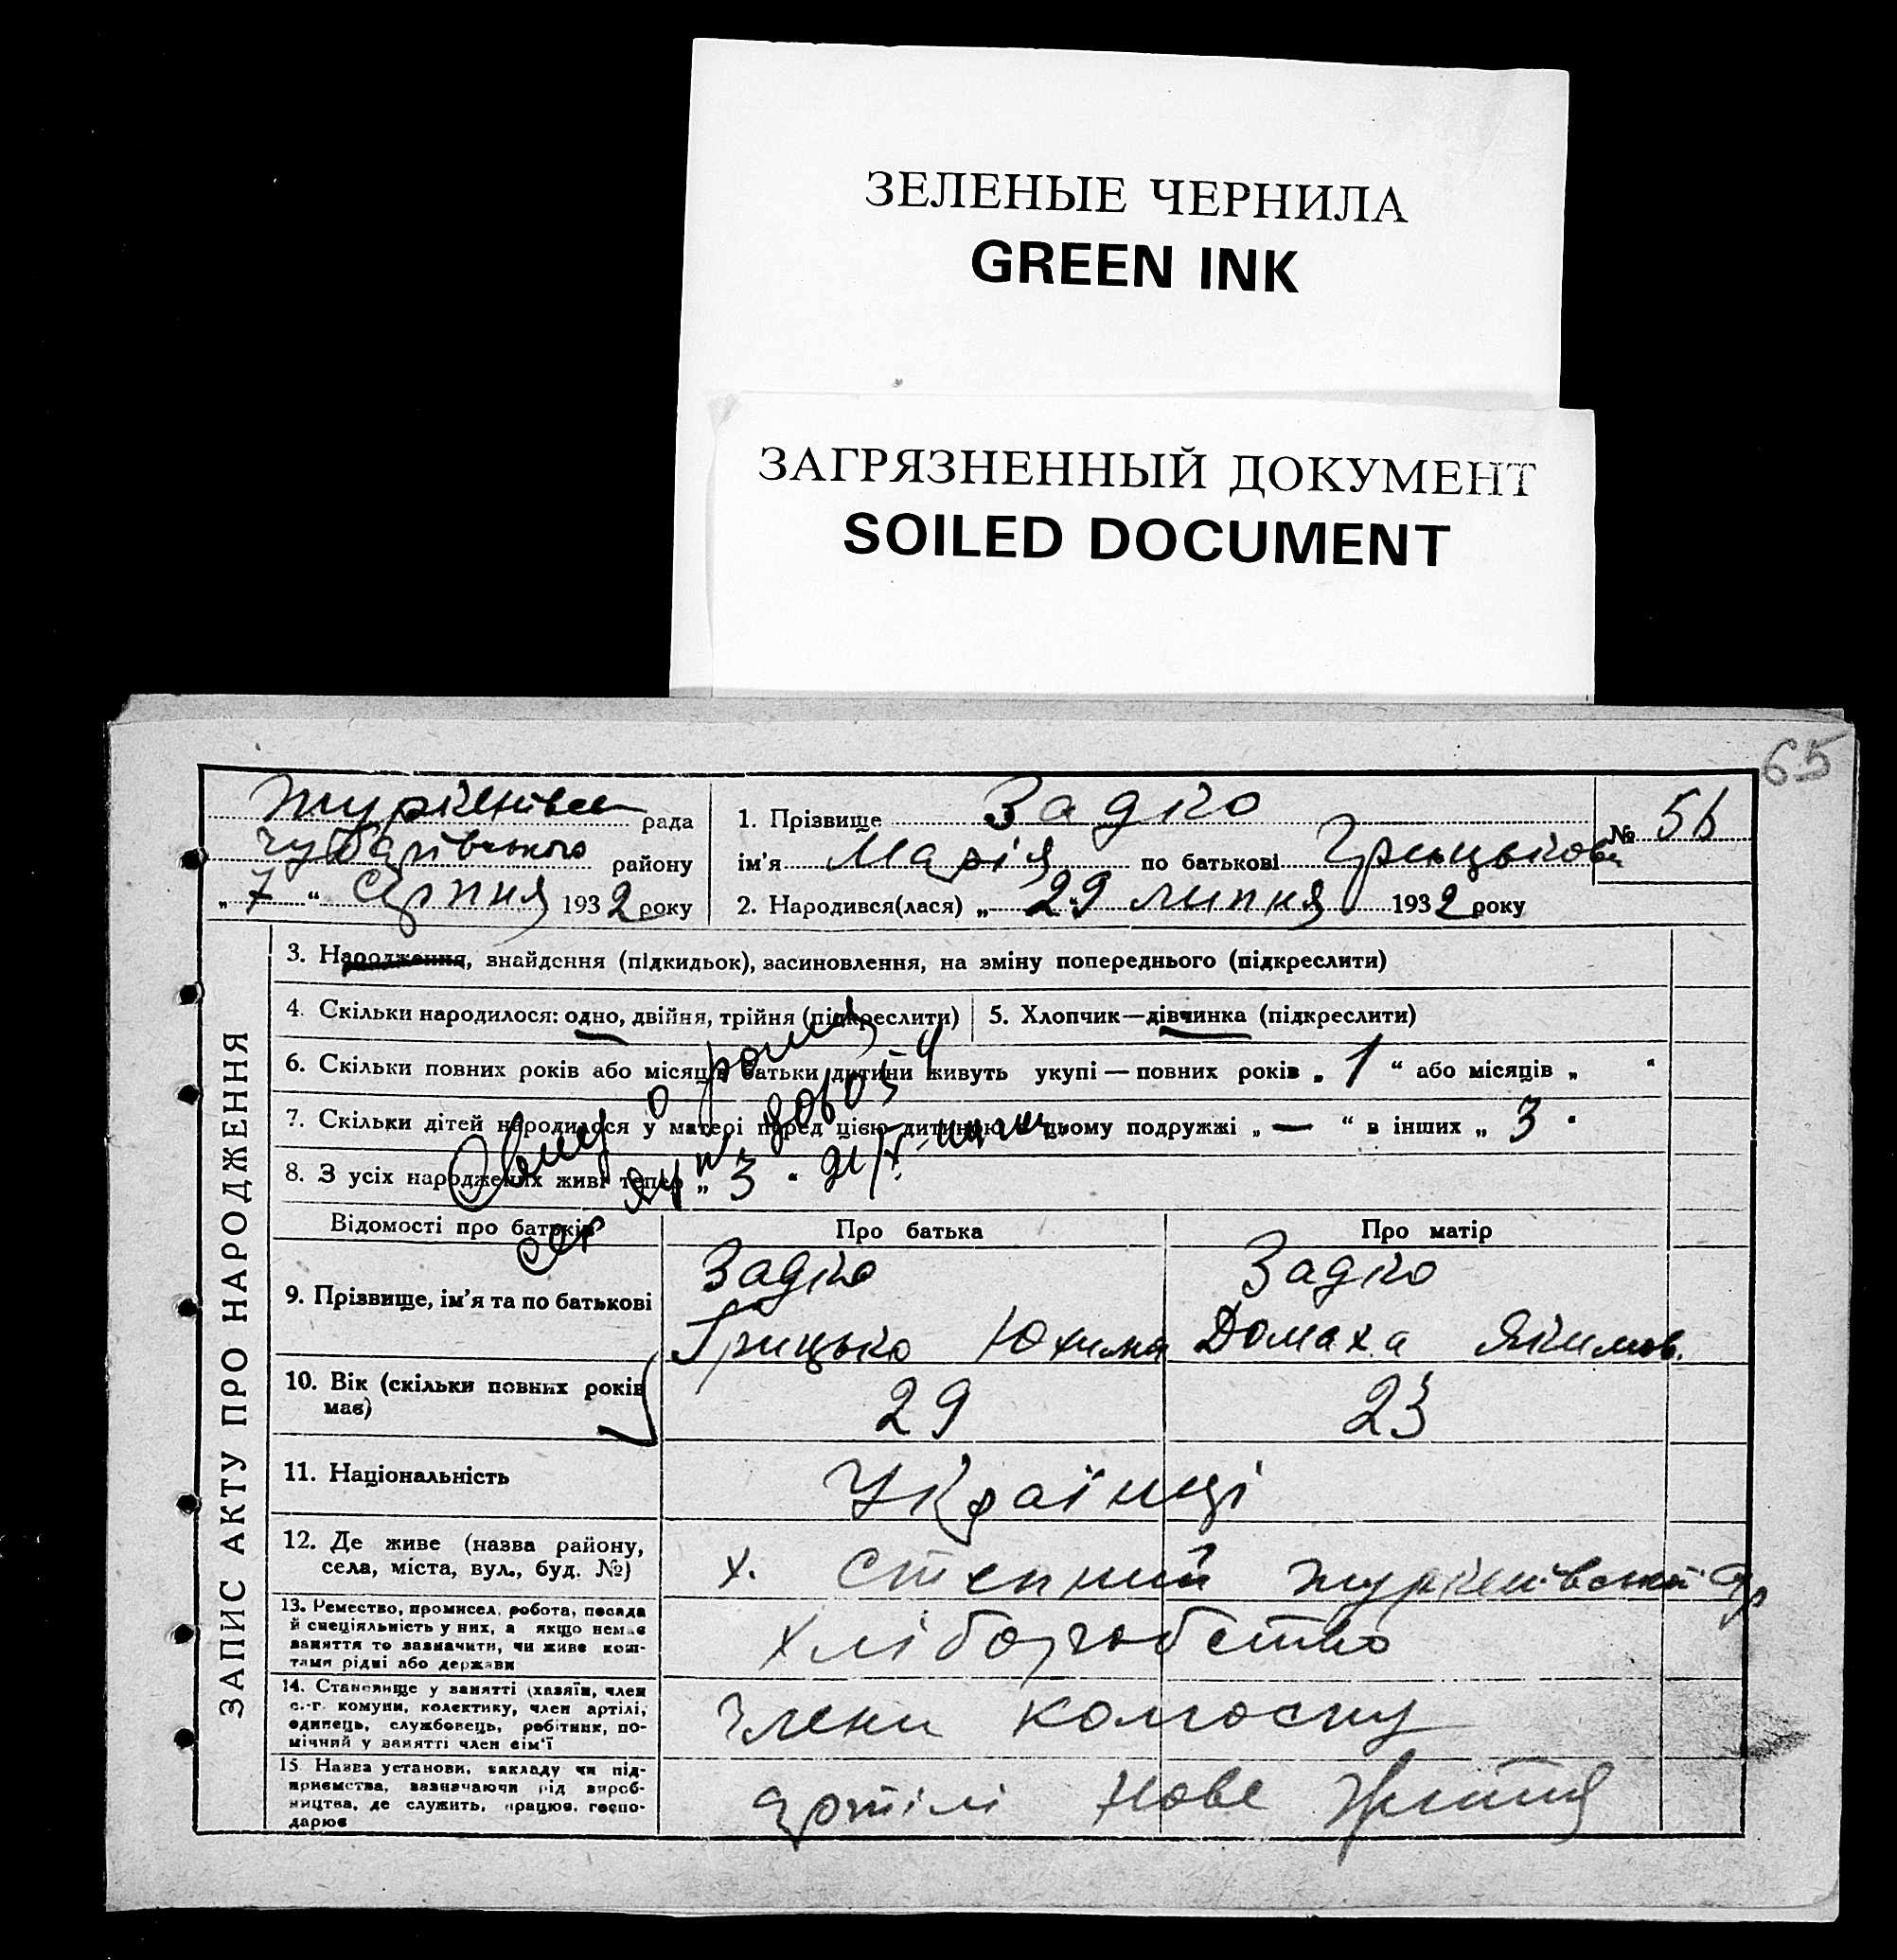 ЗЕЛЕНЫЕ ЧЕРНИЛА
GREEN INK
ЗАГРЯЗНЕННЫЙ ДОКУМЕНТ
SOILED DOCUMENT
65
рада
Чубарівського району
„ 7 “ Серпня 1932 року
1. Прізвище Задко
ім'я Марія по батькові Грицькова
2. Народився(лася) „ 29 “ липня 1932 року
№ 56
ЗАПИС АКТУ ПРО НАРОДЖЕННЯ
3. Народження, знайдення (підкидьок), засиновлення, на зміну попереднього (підкреслити)
4. Скільки народилося: одно, двійня, трійня (підкреслити)
5. Хлопчик—дівчинка (підкреслити)
6. Скільки повних років або місяців батьки дитини живуть укупі — повних років „ 1 “ або місяців „ “
7. Скільки дітей народилося у матері перед цією дитиною в цьому подружжі „ — “ в інших „ 3 “
8. З усіх народжених живі тепер „ 3 “
Відомості про батьків
Про батька
Про матір
9. Прізвище, ім'я та по батькові
Задко
Грицько Юхимов
Задко
Домаха Якимов.
10. Вік (скільки повних років має)
29
23
11. Національність
Українці
12. Де живе (назва району, села, міста, вул., буд. №)
х. Степний
13. Ремество, промисел, робота, посада й спеціяльність у них, а якщо немає заняття то зазначити, чи живе коштами рідні або держави
Хліборобство
14. Становище у занятті (хазяїн, член с.-г. комуни, колективу, член артілі, одинець, службовець, робітник, помічний у занятті член сім'ї
члени колгоспу
15. Назва установи, закладу чи підприємства, зазначаючи рід виробництва, де служить, працює, господарює
артілі Нове Життя